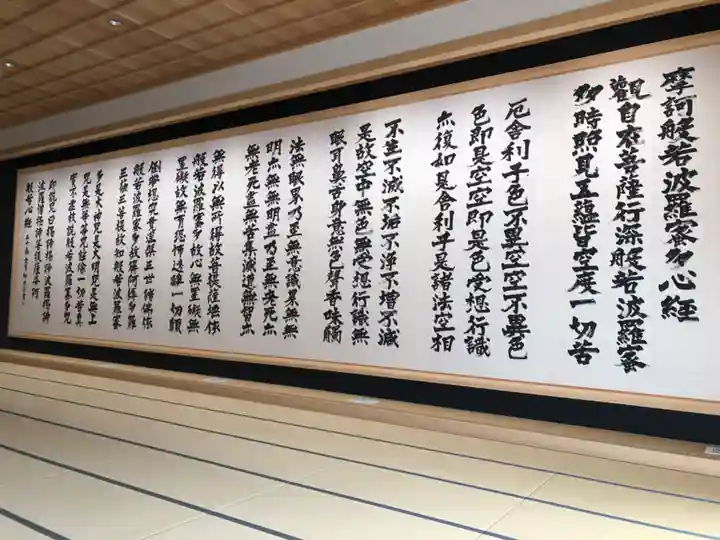 摩訶般若波羅蜜多心経
観自在菩薩行深般若波羅蜜
多時照見五蘊皆空度一切苦
厄舎利子色不異空空不異色
色即是空空即是色受想行識
亦復如是舎利子是諸法空相
不生不滅不垢不浄不増不減
是故空中無色無受想行識無
眼耳鼻舌身意無色声香味觸
法無眼界乃至無意識界無無
明亦無無明盡乃至無老死亦
無老死盡無苦集滅道無智亦
無得以無所得故菩提薩埵依
般若波羅蜜多故心無罣礙無
罣礙故無有恐怖遠離一切顛
倒夢想究竟涅槃三世諸佛依
般若波羅蜜多故得阿耨多羅
三藐三菩提故知般若波羅蜜
多是大神呪是大明呪是無上
呪是無等等呪能除一切苦真
實不虚故説般若波羅蜜多呪
即説呪曰掲諦掲諦波羅掲諦
波羅僧掲諦菩提薩婆訶
般若心経